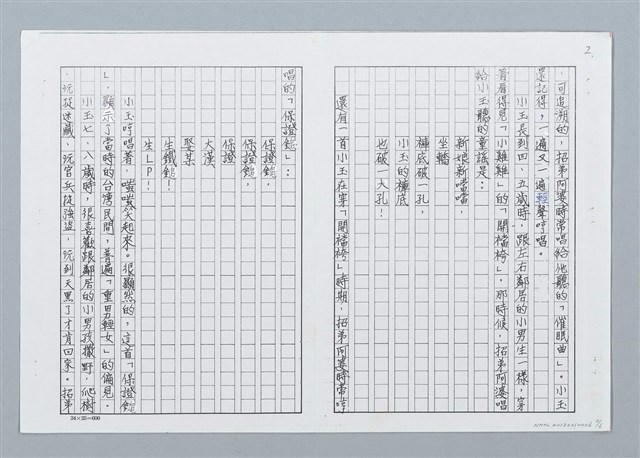 2.
，可追溯的，招弟阿婆時常唱給他聽的「催眠曲」。小玉
還記得，一遍又一遍輕聲哼唱。
小玉長到四、五歲時，跟左右鄰居的小男生一樣，穿
著看得見「小雞雞」的「開襠褲」。那時候，招弟阿婆唱
給小玉聽的童謠是：
新娘新噹噹，
坐轎
褲底破一孔，
小玉的褲底
也破一大孔！
還有一首小玉在穿「開襠褲」時期，招弟阿婆時常哼
唱的「保證鎚」：
保證鎚，
保證鎚，
保證
大漢
娶某
生鐵鎚！
生LP！
小玉哼唱著，嗤嗤笑起來。很顯然的，這首「保證鎚
」，顯示了當時的台灣民間，普遍「重男輕女」的偏見。
小玉七、八歲時，很喜歡跟鄰居的小男孩撒野，爬樹
，玩捉迷藏、玩官兵捉強盜，玩到天黑了才肯回家。招弟
24×25=600